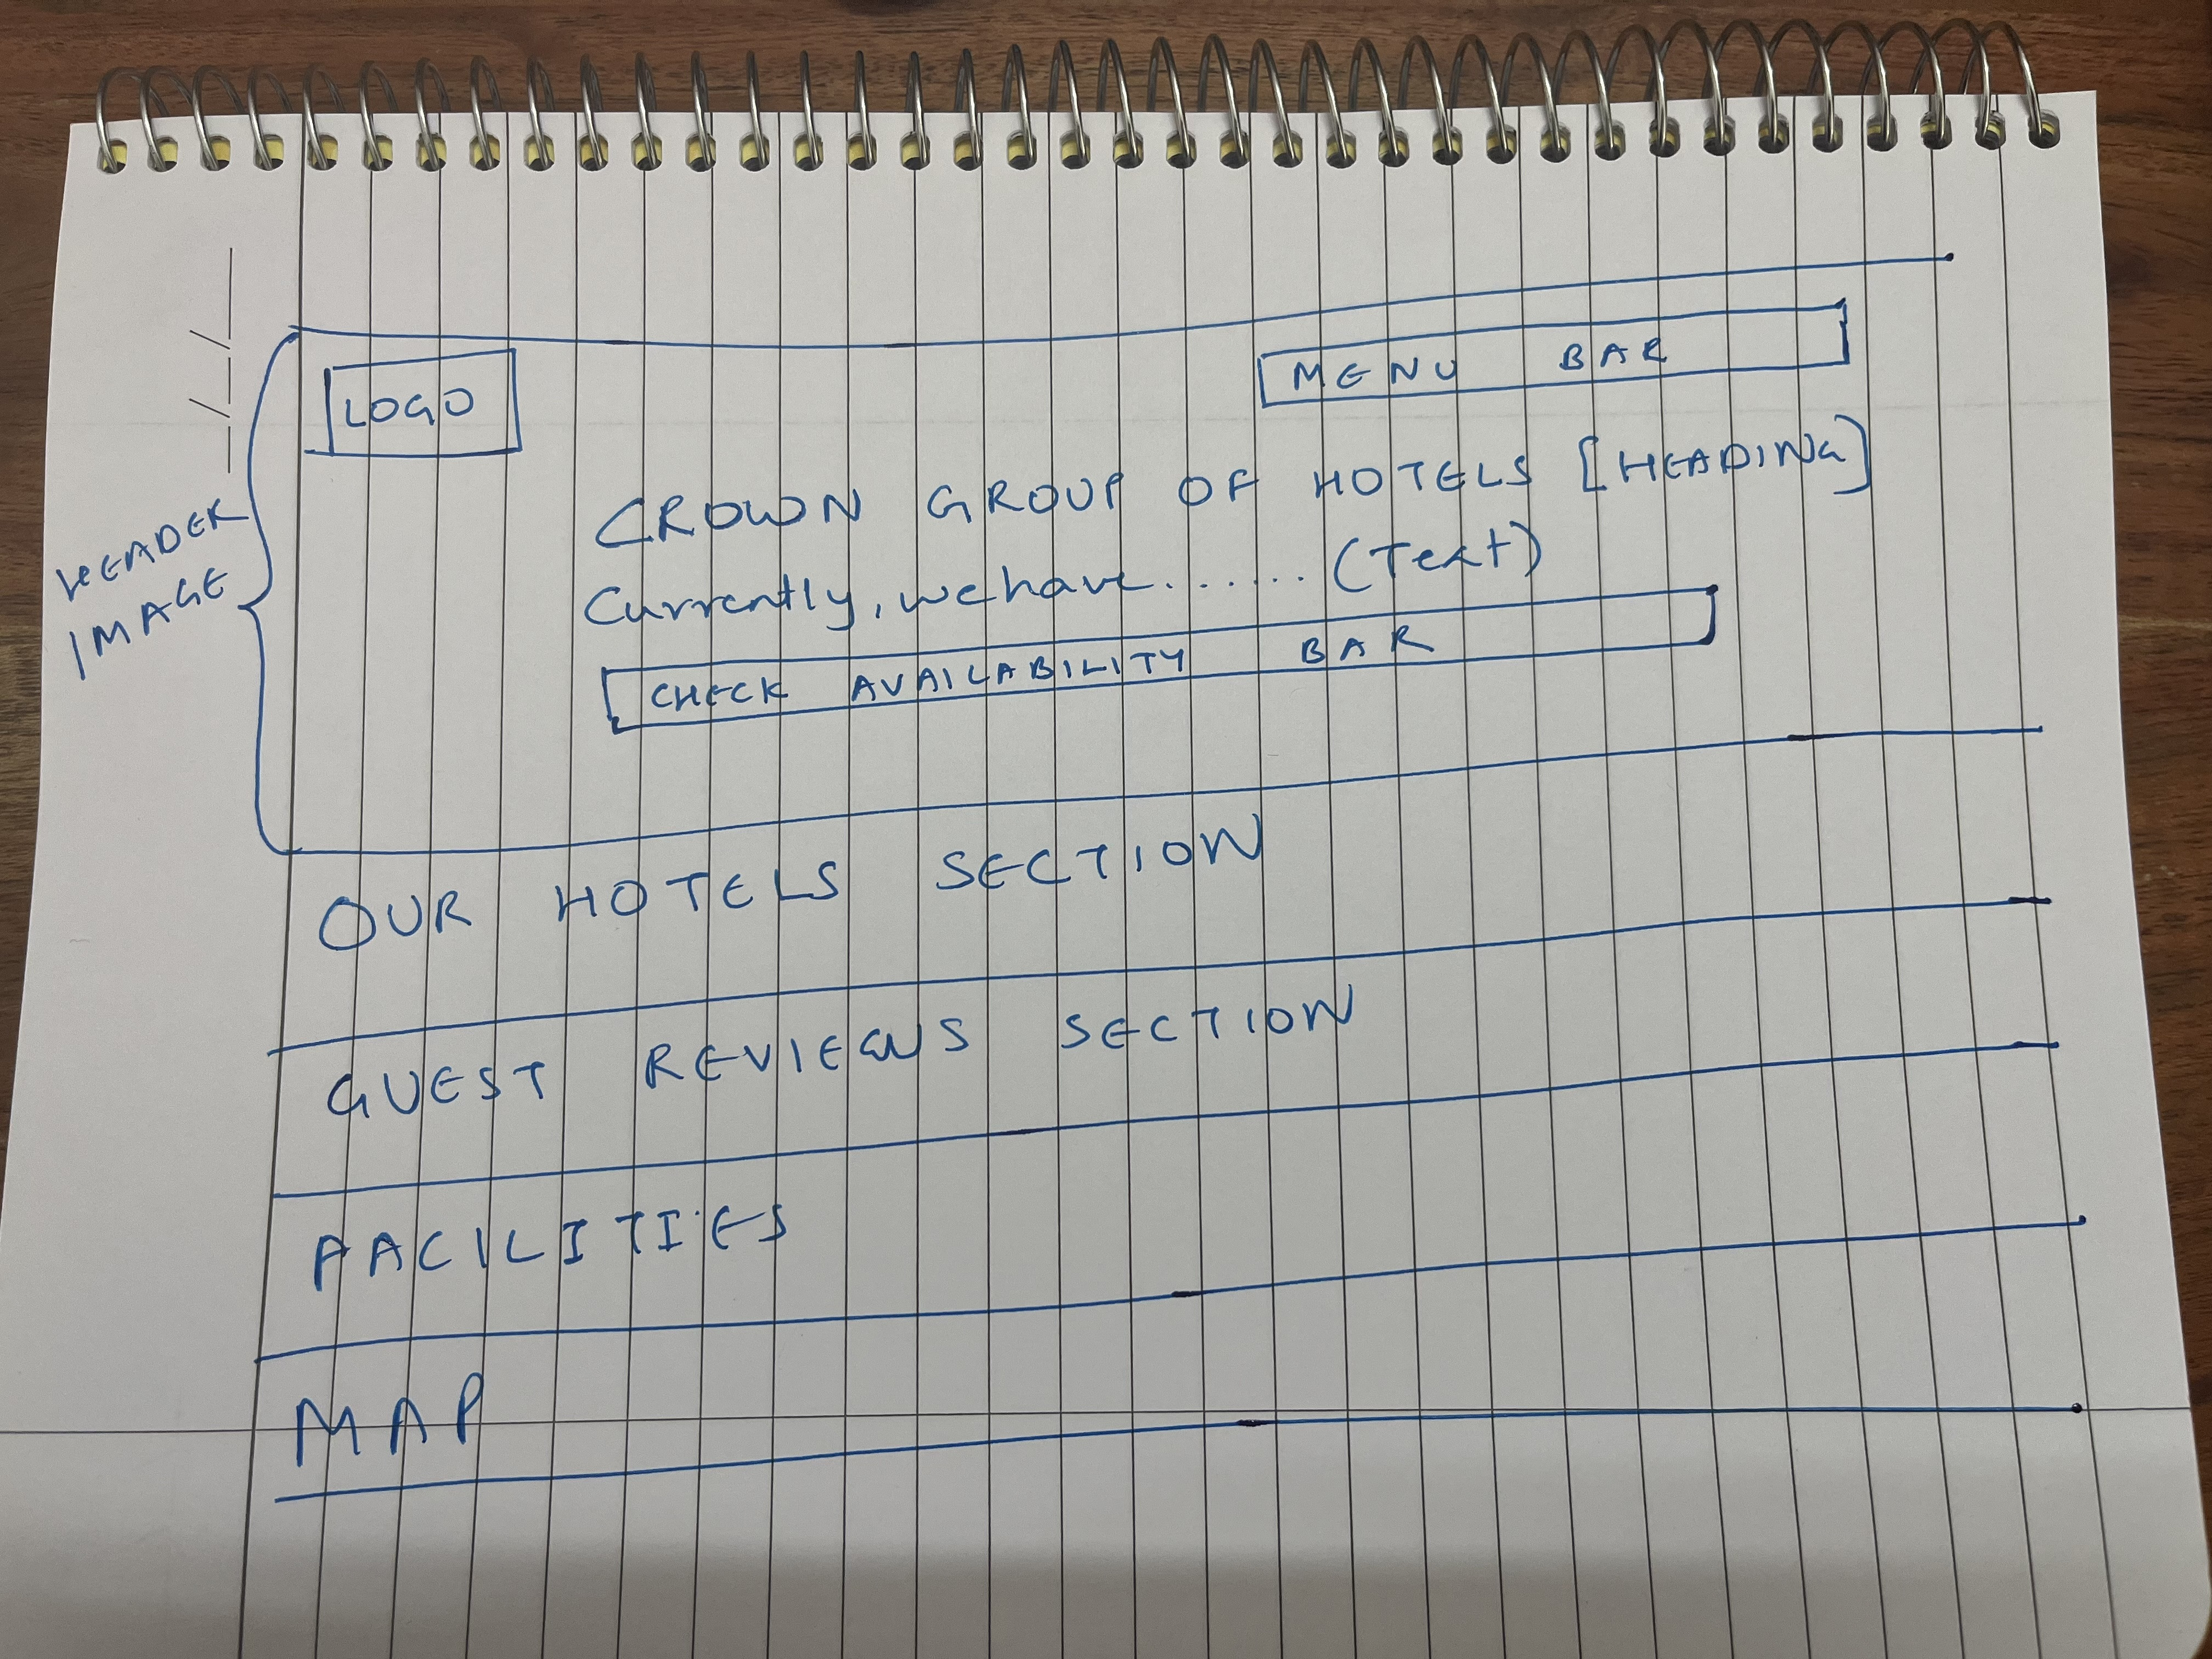 LOGO
MENU BAR
CROWN GROUP OF HOTELS [HEADING]
Currently, we have....... (Text)
CHECK AVAILABILITY BAR
HEADER
IMAGE
OUR HOTELS SECTION
GUEST REVIEWS SECTION
FACILITIES
MAP